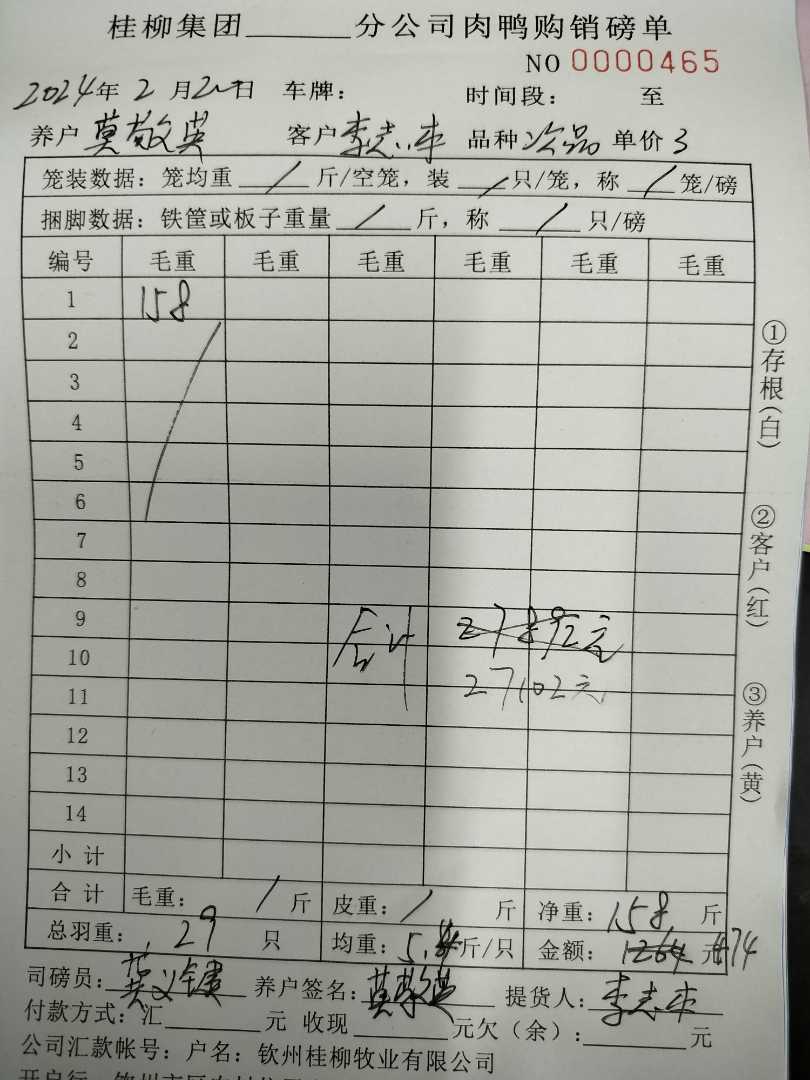 桂柳集团______分公司肉鸭购销磅单
NO 0000465
2024年 2 月 2 日 车牌： 时间段： 至
养户 莫敬英 客户 李志 品种 次品 单价 3
笼装数据：笼均重 / 斤/空笼，装 / 只/笼，称 / 笼/磅
捆脚数据：铁筐或板子重量 / 斤，称 / 只/磅
编号 毛重 毛重 毛重 毛重 毛重 毛重
1 158
2
3
4
5
6
7
8
9
合计 27892元
10
27102元
11
12
13
14
小计
合计 毛重： / 斤 皮重： / 斤 净重：158 斤
总羽重： 29 只 均重：5. 斤/只 金额：1264 元 474
司磅员： 养户签名：莫敬英 提货人：李志
付款方式：汇______元 收现______元欠（余）：______元
公司汇款帐号：户名：钦州桂柳牧业有限公司
①存根（白）
②客户（红）
③养户（黄）